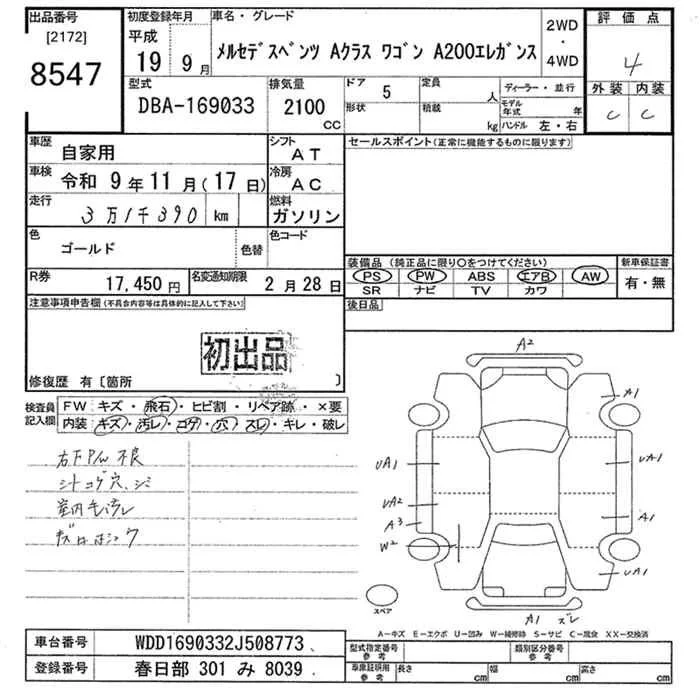 出品番号
[2172]
8547
初度登録年月
平成
19 9月
車名・グレード
メルセデスベンツ Aクラス ワゴン A200エレガンス
2WD
・
4WD
評価点
4
外装 内装
C C
型式
DBA-169033
排気量
2100
CC
ドア 5
形状
定員 人
積載 kg
ディーラー・並行
モデル年式 年
ハンドル 左・右
車歴
自家用
シフト
AT
車検
令和 9年 11月(17日)
冷房
AC
走行
3万1千390 km
燃料
ガソリン
色
ゴールド
色替
色コード
R券
17,450円
名変通知期限
2月28日
セールスポイント(正常に機能するものに限ります)
装備品 (純正品に限り○をつけてください)
PS PW ABS エアB AW
SR ナビ TV カワ
新車保証書
有・無
後日品
注意事項申告欄(不具合内容等は具体的に記入して下さい)
初出品
修復歴 有〔箇所 〕
検査員記入欄
FW キズ・飛石・ヒビ割・リペア跡・×要
内装 キズ・汚レ・コゲ・穴・スレ・キレ・破レ
シートコゲ穴、シミ
A2
A1
UA1
UA1
UA2
A3
A1
W2
UA1
A1 ズレ
スペア
A−キズ E−エクボ U−凹み W−補修跡 S−サビ C−腐食 XX−交換済
車台番号
WDD1690332J508773
登録番号
春日部 301 み 8039
型式指定番号
参考
類別区分番号
参考
車庫証明用
参考
長さ cm
幅 cm
高さ cm